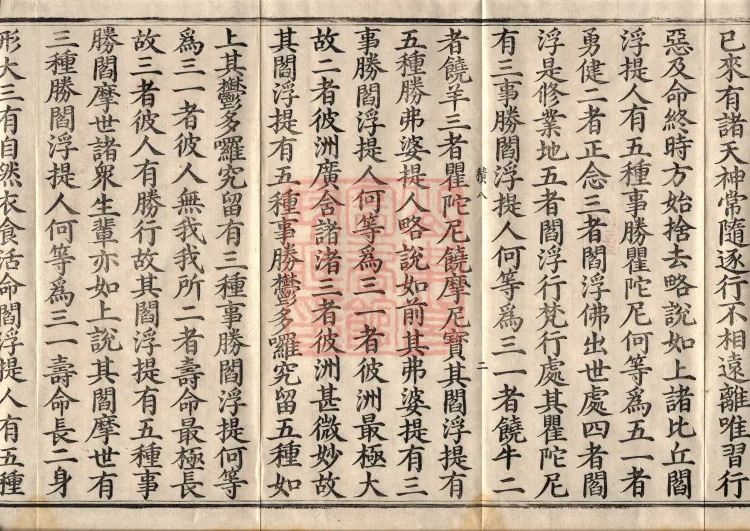 已來有諸天神常隨逐行不相遠離唯習行
惡及命終時方始捨去略說如上諸比丘閻
浮提人有五種事勝瞿陀尼何等為五一者
勇健二者正念三者閻浮佛出世處四者閻
浮是修業地五者閻浮行梵行處其瞿陀尼
有三事勝閻浮提人何等為三一者饒牛二
積八 二
者饒羊三者瞿陀尼饒摩尼寶其閻浮提有
五種勝弗婆提人略說如前其弗婆提有三
事勝閻浮提人何等為三一者彼洲最極大
故二者彼洲廣含諸渚三者彼洲甚微妙故
其閻浮提有五種事勝鬱多囉究留五種如
上其鬱多囉究留有三種事勝閻浮提何等
為三一者彼人無我我所二者壽命最極長
故三者彼人有勝行故其閻浮提有五種事
勝閻摩世諸眾生輩亦如上說其閻摩世有
三種勝閻浮提人何等為三一壽命長二身
形大三有自然衣食活命閻浮提人有五種